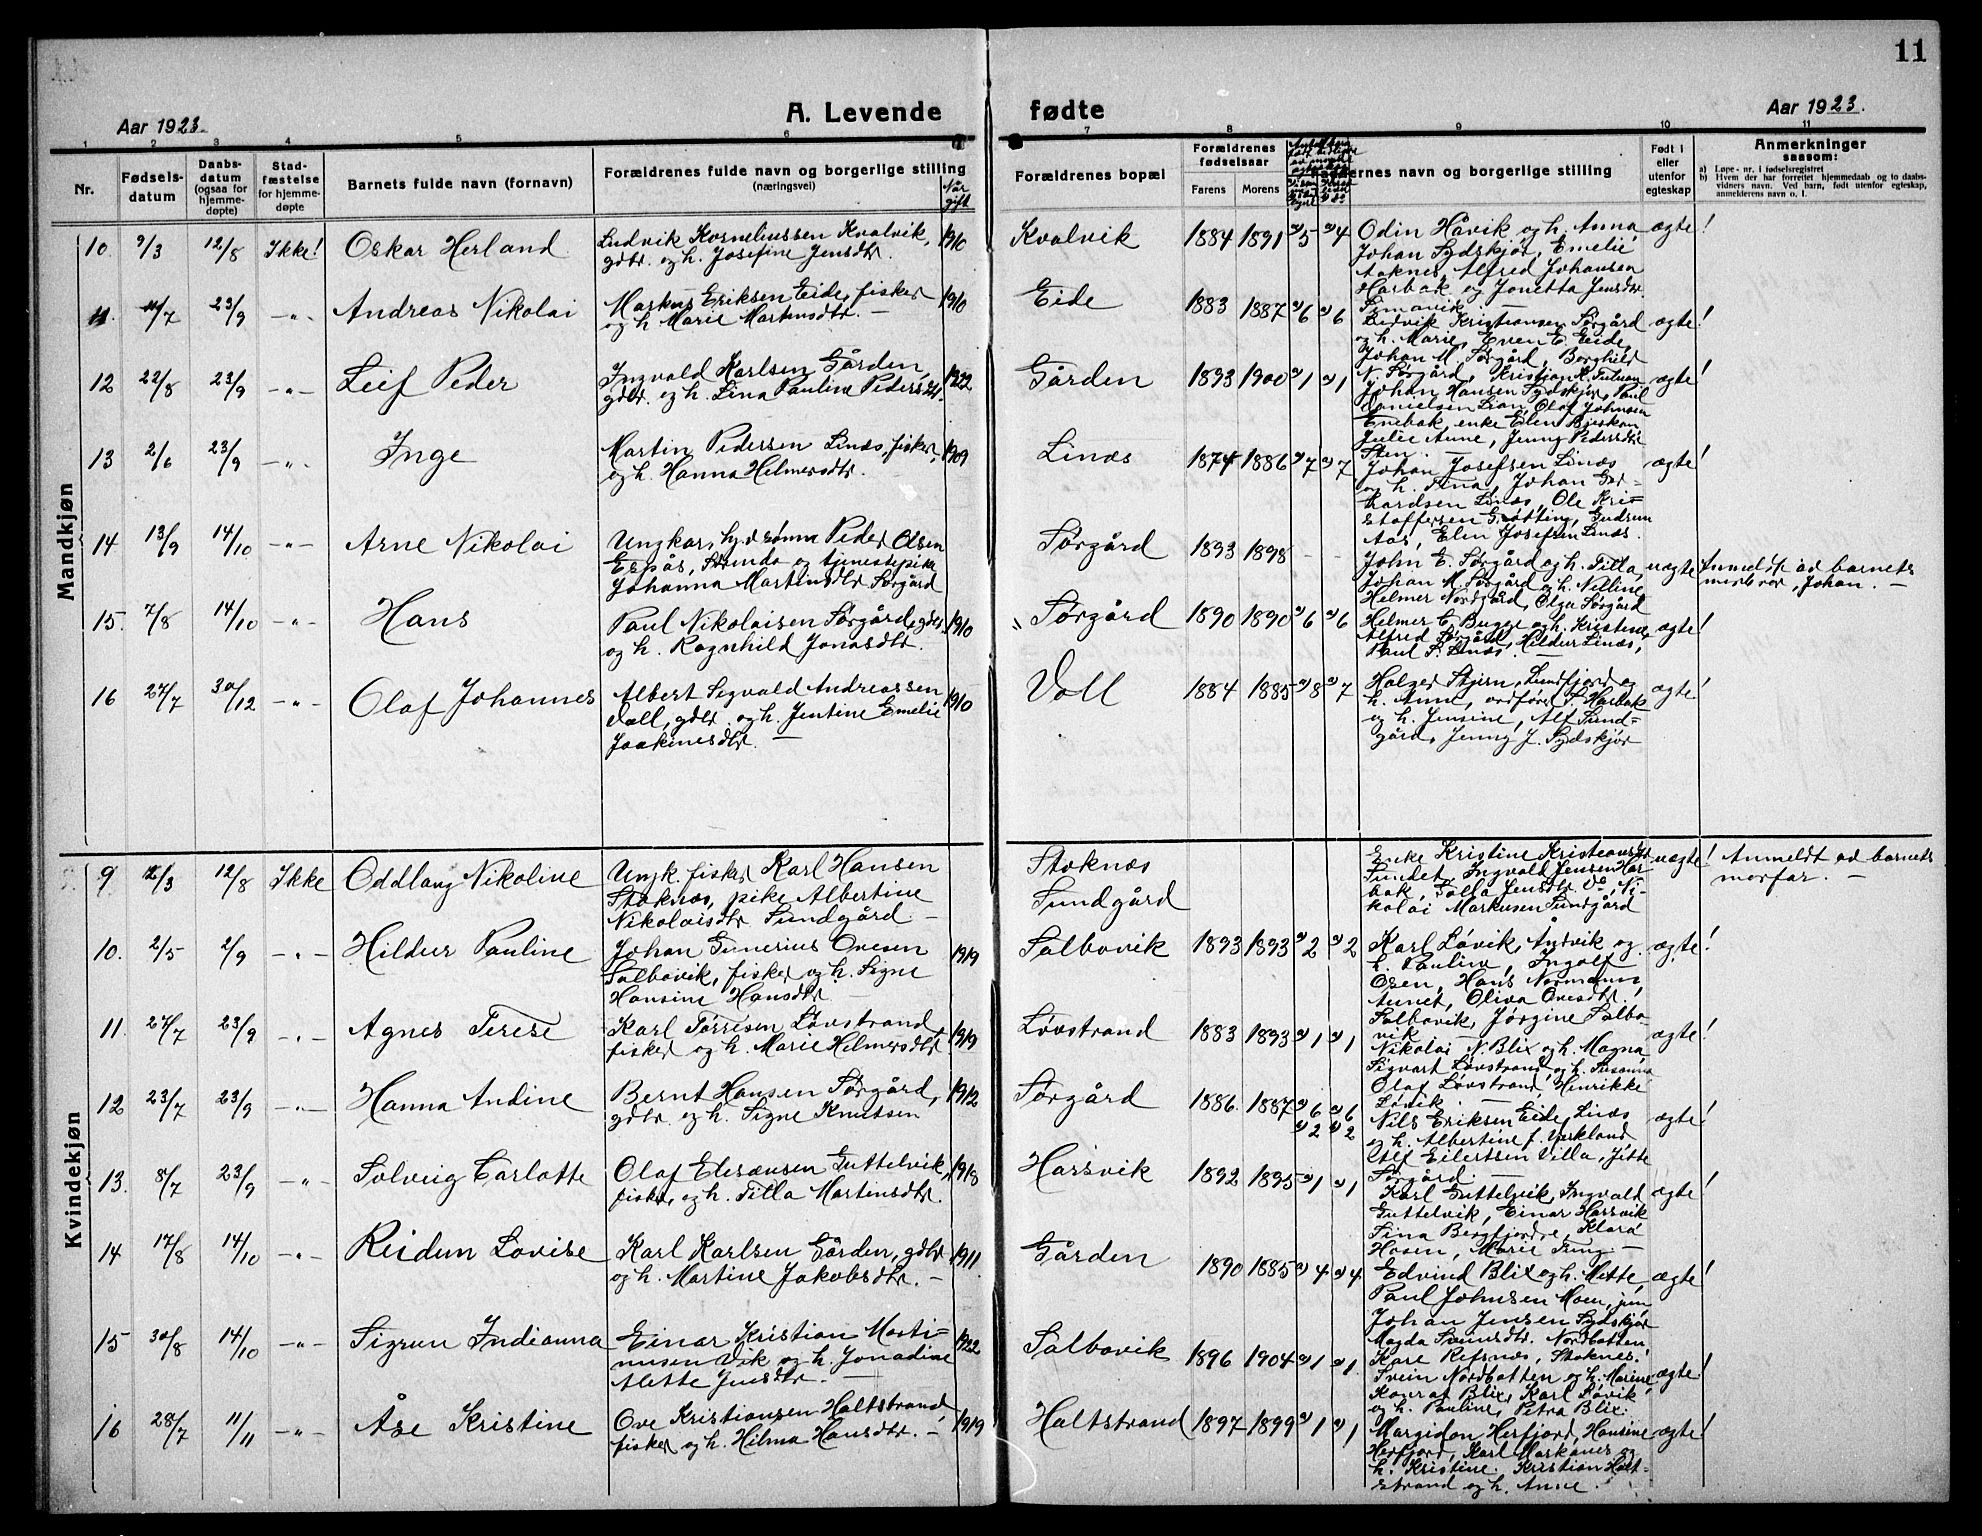 11
A. Levende fødte
Aar 1923.
Aar 1923.
1 2 3 4 5 6 7 8 9 10 11
Nr.
Fødselsdatum
Daabsdatum (ogsaa for hjemmedøpte)
Stadfæstelse for hjemmedøpte
Barnets fulde navn (fornavn)
Forældrenes fulde navn og borgerlige stilling (næringsvei)
Når gift
Forældrenes bopæl
Forældrenes fødselsaar
Farens
Morens
Faddernes navn og borgerlige stilling
Født i eller utenfor egteskap
Anmerkninger saasom:
a) Løpe-nr. i fødselsregistret
b) Hvem der har forrettet hjemmedaab og to daabsvidners navn. Ved barn, født utenfor egteskap, anmelderens navn o. l.
Mandkjøn
10. 9/3 12/8 Ikke! Oskar Herland
Ludvik Korneliussen Kvalvik,
gdbr. og h. Josefine Jensdtr.
1910 Kvalvik 1884 1891 a) 5 a) 4
Odin Håvik og h. Anna
Johan Sydskjør, Emelie
Aaknes, Alfred Johansen
Harbak og Jonetta Jensdtr.
ægte!
11. 11/7 23/9 -"- Andreas Nikolai
Markus Eriksen Eide, fisker
og h. Marie Martinsdtr. —
1910 Eide 1883 1887 a) 6 a) 6
Ludvik Kristiansen Sørgård
og h. Marie, Even E. Eide,
Johan M. Sørgård, Borghild
N. Sørgård,
ægte!
12 22/8 23/9 -"- Leif Peder
Ingvald Karlsen Gården,
gdbr. og h. Lina Pauline Pedersdtr.
1922 Gården 1893 1900 a) 1 a) 1
Johan Hansen Sydskjør, Paul
Danielsen Lian, Olaf Johnsen
Enebak, enke Elen
Julie Aune, Jenny Pedersdtr
Sten. —
ægte!
13 2/6 23/9 -"- Inge
Martin Pedersen Linæs, fisker,
og h. Hanna Helmersdtr.
1909 Linæs 1874 1886 a) 7 a) 7
Johan Josefsen Linæs
og h. Tina, Johan Ger-
hardsen Linæs, Ole Kri-
stoffersen Grøtting, Gudrun
Aas, Elen Josefsen Linæs.
ægte!
14 13/9 14/10 -"- Arne Nikolai
Ungkar, Peder Olsen
Espås, og tjenestepike
Johanna Martinsdtr Sørgård
Sørgård 1893 1898 - -
John E. Sørgård og h. Titla,
Johan M. Sørgård og h. Nilline
Helmer Nordgård, Olga Sørgård
uægte
Anmeldt av barnets
morbror, Johan. —
15. 7/8 14/10 -"- Hans
Paul Nikolaisen Sørgård, gdbr,
og h. Ragnhild Jonasdtr.
1910 Sørgård 1890 1890 a) 6 a) 6
Helmer C. Buger og h. Kristine,
Alfred Sørgård, Hildur Linæs,
Paul P. Linæs. —
ægte!
16 27/7 30/12 -"- Olaf Johannes
Albert Sigvald Andreassen
Voll, gdbr. og h. Jentine Emelie
Joakimsdtr. —
1910 Voll 1884 1885 a) 8 a) 7
Holger Stjern, Sundfjord og
h. Anne, ordfører P. Harbak
og h. Jensine, Alf Sund-
gård, Jenny J. Sydskjør
ægte!
Kvindekjøn
9 12/3 12/8 Ikke Oddlaug Nikoline
Ungk. fisker Karl Hansen
Stoknæs, pike Albertine
Nikolaisdtr Sundgård —
Stoknæs
Sundgård
Enke Kristine Kristiansdtr
Sundet, Ingvald Jensen Har
bak, Jensdtr Ni-
kolai Markusen Sundgård
uægte!
Anmeldt av barnets
morfar. —
10. 2/5 2/9 -"- Hildur Pauline
Johan Gunerius Ovesen
Salbovik, fisker og h. Signe
Hansine Hansdtr —
1919 Salbovik 1893 1893 a) 2 a) 2
Karl Løvik, Andvik og
h. Pauline, Ingolf
Osen, Hans Normann
Aunet, Oliva Ovesdtr.
Salbovik, Jørgine Salbo-
vik —
ægte!
11. 27/7 23/9 -"- Agnes Terese
Karl Tørrisen Løvstrand
fisker og h. Marie Helmersdtr
1919 Løvstrand 1883 1893 a) 1 a) 1
Nikolai N. Blix og h. Magna
Sigvart Løvstrand og h. Susanna
Olaf Løvstrand, Henrikke
Løvik. —
ægte!
12 23/7 23/9 -"- Hanna Andine
Bernt Hansen Sørgård,
gdbr. og h. Signe Knutsen
1912 Sørgård 1886. 1887 a) 6 a) 6
b) 2 b) 2
Nils Eriksen Eide, Linæs
og h. Albertine f. Yrkland
Alf Eilertsen Villa, Jitte
Sørgård. —
ægte!
13. 8/7 23/9 -"- Solveig Carlotte
Olaf Eliseussen Guttelvik,
fisker, og h. Titla Martinsdtr.
1918 Harsvik 1892 1895 a) 1 a) 1
Karl Guttelvik, Ingvald
Guttelvik, Einar Harsvik
Sina Bergfjord, Klara
Hosen, Marie —
ægte!
14 17/8 14/10 -"- Reidun Lovise
Karl Karlsen Gården, gdbr
og h. Martine Jakobsdtr. —
1911. Gården 1890 1885 a) 4 a) 4
Edvind Blix og h. Mette,
Paul Johnsen Moen, jun
Johan Jensen Sydskjør
Magda Svensdtr. Nordbotten
ægte!
15 30/8 14/10 -"- Sigrun Indianna
Einar Kristian Marti-
nusen Vik og h. Jonadine
Alette Jensdtr. —
1922 Salbovik 1896 1904 a) 1 a) 1
Kåre Refsnæs, Stoknes.
Svein Nordbotten og h. Marine
Konrat Blix, Karl Løvik
og h. Pauline, Petra Blix.
ægte!
16 28/7 11/11 -"- Åse Kristine
Ove Kristiansen Haltstrand,
fisker og h. Hilma Hansdtr. —
1919 Haltstrand 1897 1899 a) 1 a) 1
Margidon Herfjord, Hansine
Herfjord, Karl Markånes og
h. Kristine. Kristian Halt-
strand og h. Anne.
ægte!